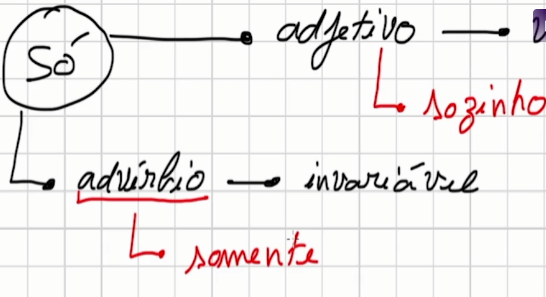 Só adjetivo
sozinho
advérbio invariável
somente